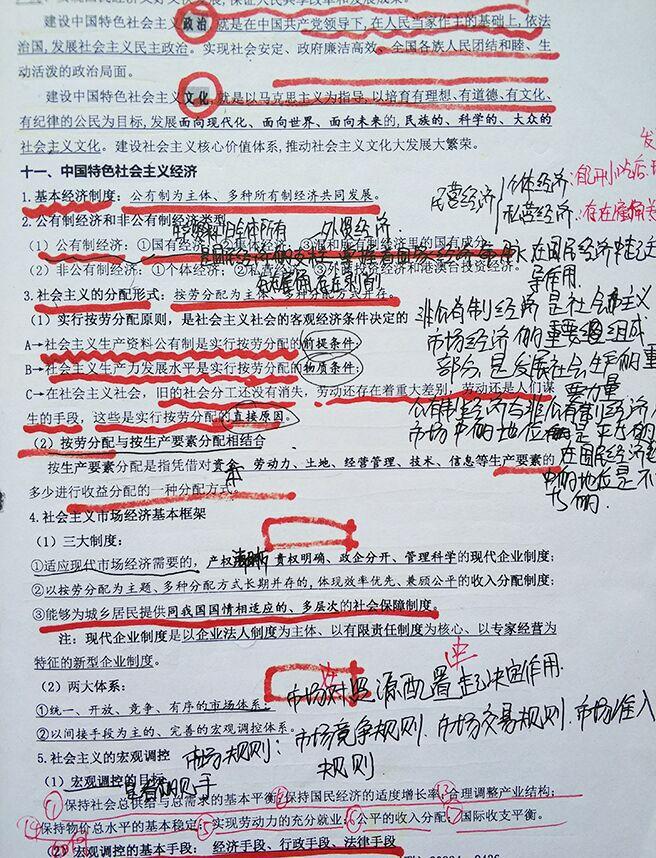 建设中国特色社会主义政治,就是在中国共产党领导下,在人民当家作主的基础上,依法
治国,发展社会主义民主政治。实现社会安定、政府廉洁高效、全国各族人民团结和睦、生
动活泼的政治局面。
建设中国特色社会主义文化,就是以马克思主义为指导,以培育有理想、有道德、有文化、
有纪律的公民为目标,发展面向现代化、面向世界、面向未来的,民族的、科学的、大众的
社会主义文化。建设社会主义核心价值体系,推动社会主义文化大发展大繁荣。
十一、中国特色社会主义经济
1.基本经济制度:公有制为主体、多种所有制经济共同发展。
民营经济 个体经济: 私营经济:
2.公有制经济和非公有制经济类型
外资经济
(1)公有制经济:①国有经济②集体经济③混和所有制经济里的国有成分
在国民经济
导作用.
(2)非公有制经济:①个体经济②私营经济③外商投资经济和港澳台投资经济。
3.社会主义的分配形式:按劳分配为主体、多种分配方式并存。
(1)实行按劳分配原则,是社会主义社会的客观经济条件决定的
非公有制经济是社会主义
市场经济的重要组成
部分,是发展社会生产的重
要力量
A→社会主义生产资料公有制是实行按劳分配的前提条件;
B→社会主义生产力发展水平是实行按劳分配的物质条件;
C→在社会主义社会,旧的社会分工还没有消失,劳动还存在着重大差别,劳动还是人们谋
生的手段,这些是实行按劳分配的直接原因。
公有制经济与非公有制经济
市场中的地位是平等的
在国民经济
中的地位是不
(2)按劳分配与按生产要素分配相结合
按生产要素分配是指凭借对资本、劳动力、土地、经营管理、技术、信息等生产要素的
多少进行收益分配的一种分配方式
4.社会主义市场经济基本框架
(1)三大制度:
①适应现代市场经济需要的,产权清晰、责权明确、政企分开、管理科学的现代企业制度;
②以按劳分配为主题、多种分配方式长期并存的,体现效率优先、兼顾公平的收入分配制度;
③能够为城乡居民提供同我国国情相适应的、多层次的社会保障制度。
注:现代企业制度是以企业法人制度为主体、以有限责任制度为核心、以专家经营为
特征的新型企业制度。
(2)两大体系:
市场对资源配置起决定作用.
①统一、开放、竞争、有序的市场体系;
②以间接手段为主的、完善的宏观调控体系。
市场规则:市场竞争规则.市场交易规则.市场准入
规则
5.社会主义的宏观调控
(1)宏观调控的目标
看得见手
①保持社会总供给与总需求的基本平衡②保持国民经济的适度增长率③合理调整产业结构;
④保持物价总水平的基本稳定;⑤实现劳动力的充分就业;⑥公平的收入分配;⑦国际收支平衡。
(2)宏观调控的基本手段:经济手段、行政手段、法律手段